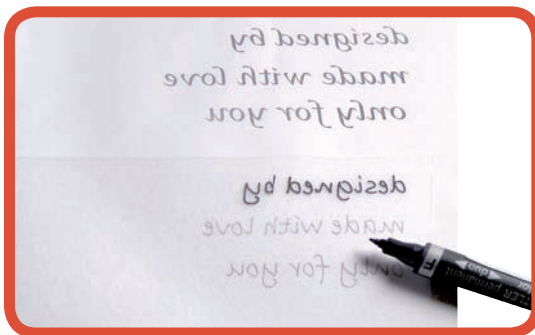 designed by
made with love
only for you
designed by
made with love
only for you
F
duo
permanent